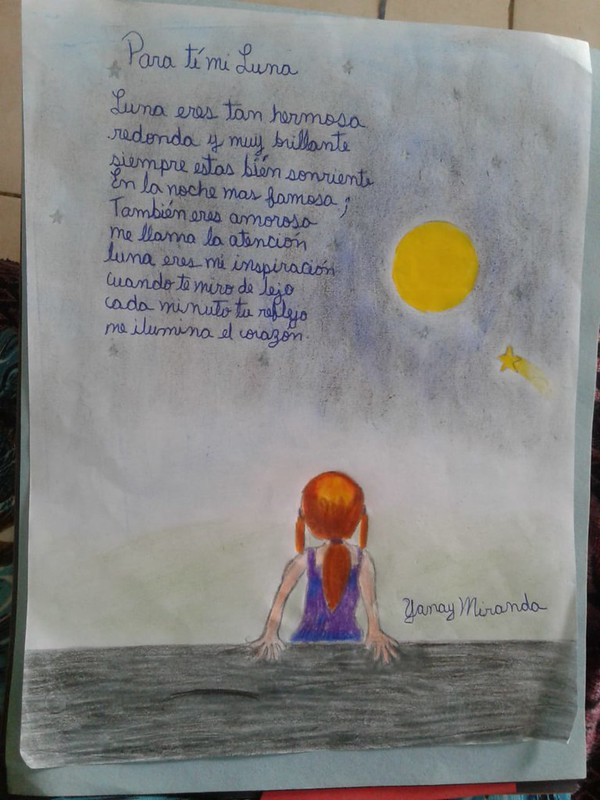 Para tí mi Luna
Luna eres tan hermosa
redonda y muy brillante
siempre estas bién sonriente
En la noche mas famosa;
También eres amorosa
me llama la atención
luna eres mi inspiración
cuando te miro de lejo
cada minuto tu reflejo
me ilumina el corazón.
Yanay Miranda